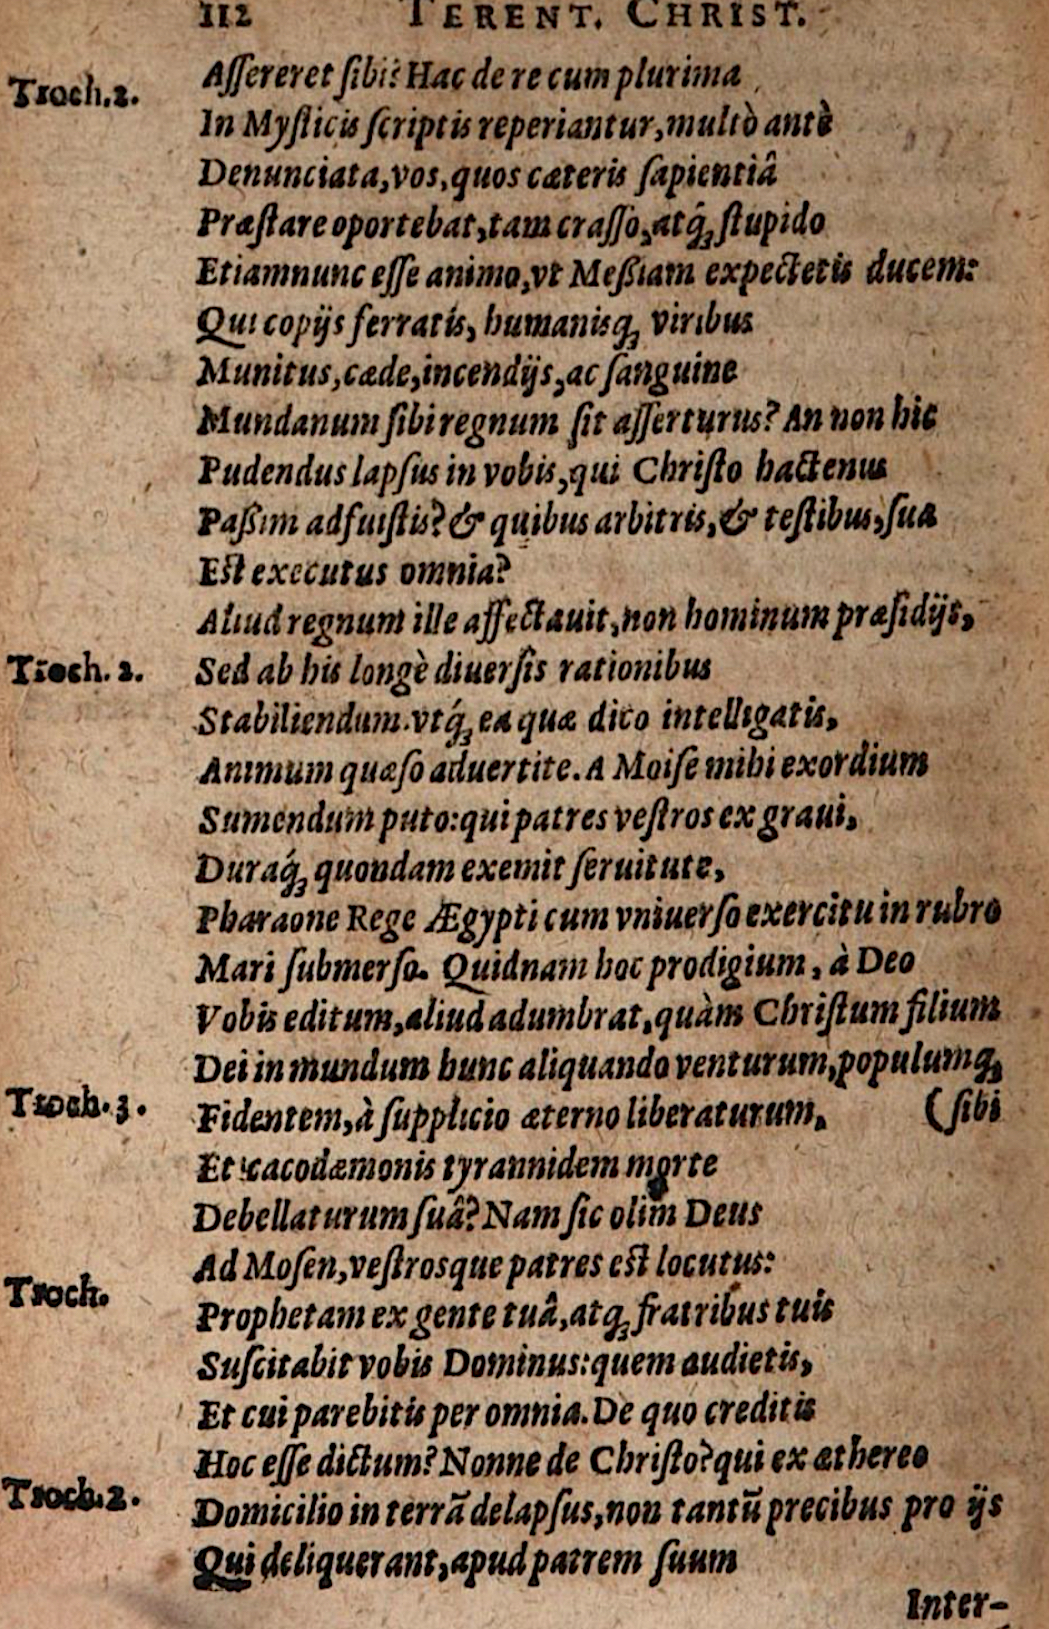 112 TERENT. CHRIST.
Aſſereret ſibi? Hac de re cum plurima
Troch.2.
In Myſticis ſcriptis reperiantur, multò antè
Denunciata, vos, quos cæteris ſapientiâ
Præſtare oportebat, tam craſſo, atq́; ſtupido
Etiamnunc eſſe animo, vt Meßiam expectetis ducem:
Qui copijs ferratis, humanisq; viribus
Munitus, cæde, incendijs, ac ſanguine
Mundanum ſibi regnum ſit aſſerturus? An non hic
Pudendus lapſus in vobis, qui Chriſto hactenus
Paßim adfuiſtis? & quibus arbitris, & teſtibus, ſua
Eſt executus omnia?
Aliud regnum ille affectauit, non hominum præſidijs,
Troch. 2. Sed ab his longè diuerſis rationibus
Stabiliendum. vtq́; ea quæ dico intelligatis,
Animum quæſo aduertite. A Moiſe mihi exordium
Sumendum puto: qui patres veſtros ex graui,
Duraq́; quondam exemit ſeruitute,
Pharaone Rege Ægypti cum vniuerſo exercitu in rubro
Mari ſubmerſo. Quidnam hoc prodigium, à Deo
Vobis editum, aliud adumbrat, quàm Chriſtum filium
Dei in mundum hunc aliquando venturum, populumq;
Troch.3. Fidentem, à ſupplicio æterno liberaturum, (ſibi
Et cacodæmonis tyrannidem morte
Debellaturum ſuâ? Nam ſic olim Deus
Ad Moſen, veſtrosque patres eſt locutus:
Troch.
Prophetam ex gente tuâ, atq; fratribus tuis
Suſcitabit vobis Dominus: quem audietis,
Et cui parebitis per omnia. De quo creditis
Hoc eſſe dictum? Nonne de Chriſto? qui ex æthereo
Troch.2. Domicilio in terrā delapſus, non tantū precibus pro ijs
Qui deliquerant, apud patrem ſuum
Inter-